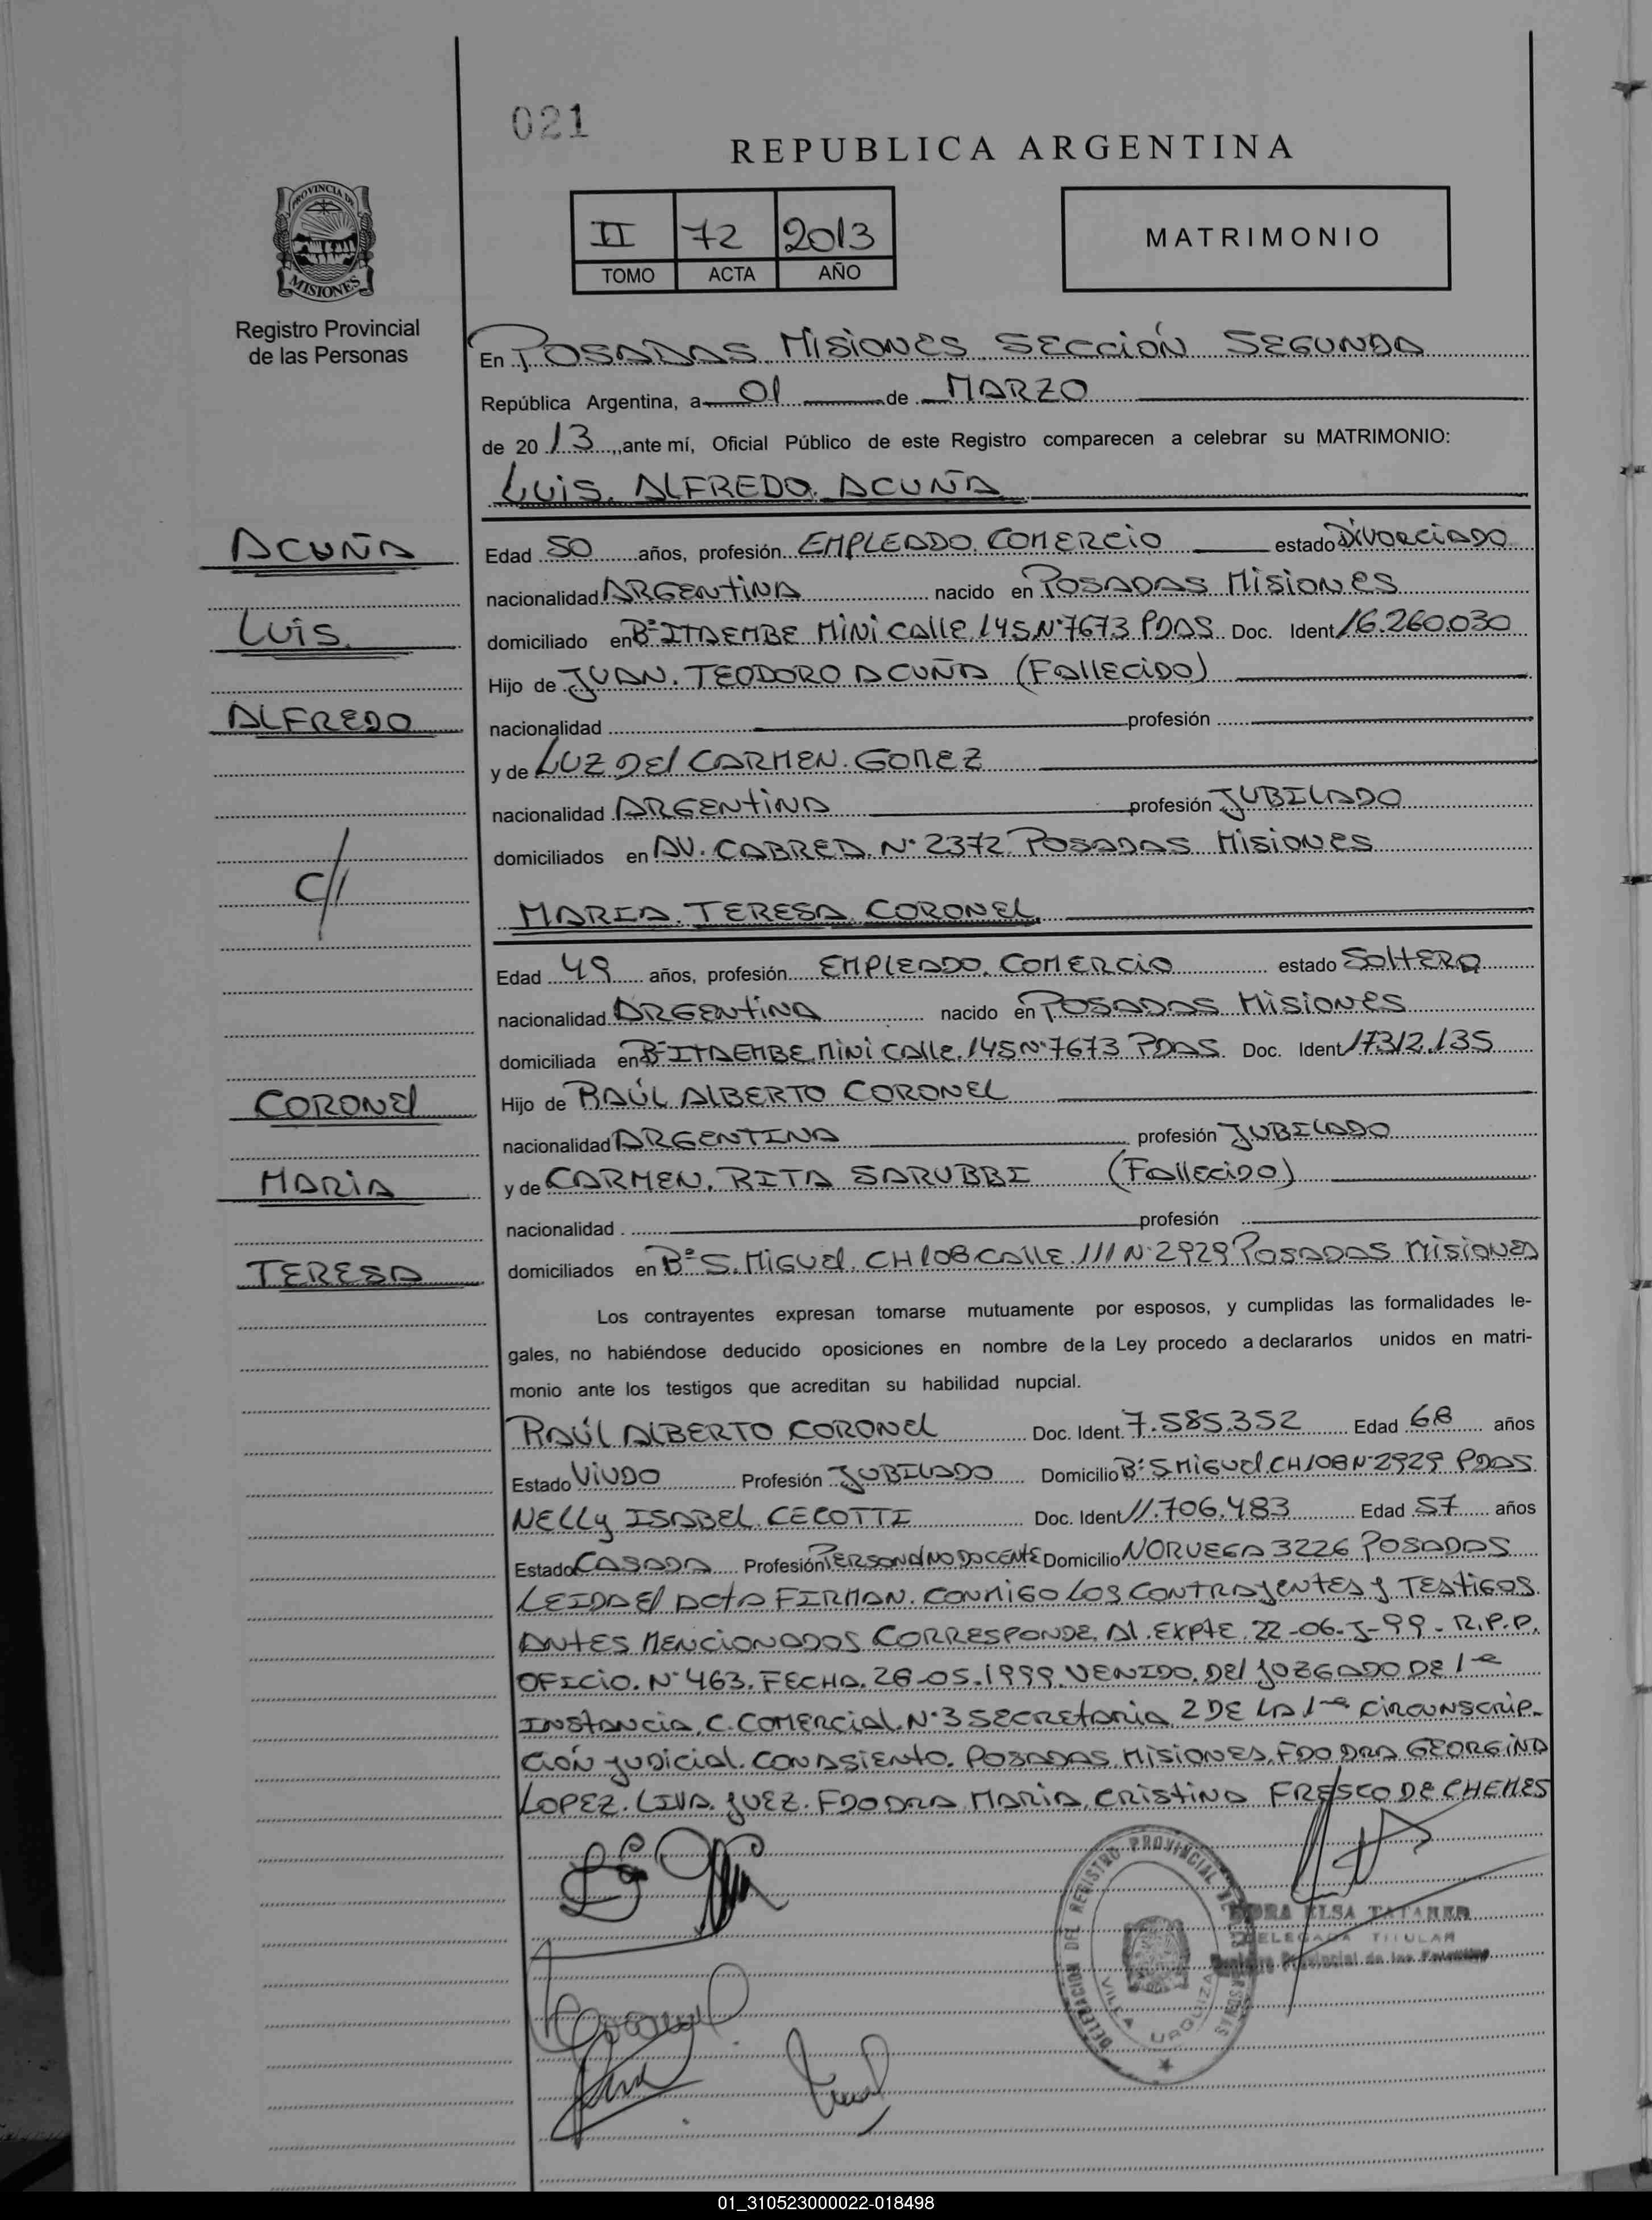 021
REPUBLICA ARGENTINA
PROVINCIA DE
MISIONES
Registro Provincial
de las Personas
II 72 2013
TOMO ACTA AÑO
MATRIMONIO
En POSADAS MISIONES SECCIÓN SEGUNDA
República Argentina, a 01 de MARZO
de 2013, ante mí, Oficial Público de este Registro comparecen a celebrar su MATRIMONIO:
LUIS. ALFREDO. ACUÑA
ACUÑA
LUIS.
ALFREDO
C//
Edad 50 años, profesión EMPLEADO. COMERCIO estado DIVORCIADO
nacionalidad ARGENTINA nacido en POSADAS MISIONES
domiciliado en Bº ITAEMBE MINI CALLE 145 Nº 7673 PDAS. Doc. Ident 16.260.030
Hijo de JUAN. TEODORO ACUÑA (FALLECIDO)
nacionalidad profesión
y de LUZ DEL CARMEN. GOMEZ
nacionalidad ARGENTINA profesión JUBILADO
domiciliados en AV. CABRED. Nº 2372 POSADAS MISIONES
MARIA. TERESA CORONEL
Edad 49 años, profesión EMPLEADO. COMERCIO estado SOLTERO
nacionalidad ARGENTINA nacido en POSADAS MISIONES
domiciliada en Bº ITAEMBE MINI CALLE. 145 Nº 7673 PDAS. Doc. Ident 17312.135
CORONEL
MARIA
TERESA
Hijo de RAÚL ALBERTO CORONEL
nacionalidad ARGENTINA profesión JUBILADO
y de CARMEN. RITA SARUBBI (FALLECIDO)
nacionalidad profesión
domiciliados en Bº S. MIGUEL. CH 108 CALLE. 111 Nº 2929 POSADAS MISIONES
Los contrayentes expresan tomarse mutuamente por esposos, y cumplidas las formalidades le-
gales, no habiéndose deducido oposiciones en nombre de la Ley procedo a declararlos unidos en matri-
monio ante los testigos que acreditan su habilidad nupcial.
RAÚL ALBERTO CORONEL Doc. Ident. 7.585.352 Edad 68 años
Estado VIUDO Profesión JUBILADO Domicilio Bº S MIGUEL CH 108 Nº 2929 PDAS.
NELLY ISABEL. CECOTTI Doc. Ident 11.706.483 Edad 57 años
Estado CASADA Profesión PERSONAL NO DOCENTE Domicilio NORUEGA 3226 POSADAS
LEIDA El ACTA FIRMAN. CONMIGO LOS CONTRAYENTES Y TESTIGOS
ANTES MENCIONADOS CORRESPONDE. Al. EXPTE. 22-06-J-99-R.P.P.
OFICIO. Nº 463. FECHA. 28-05.1999. VENIDO. DEl JUZGADO DE 1ª
INSTANCIA. C. COMERCIAL. Nº 3 SECRETARIA 2 DE LA 1ª CIRCUNSCRIP-
CIÓN JUDICIAL. CON ASIENTO. POSADAS. MISIONES. FDO DRA GEORGINA
LOPEZ. LIVA. JUEZ. FDO DRA MARIA. CRISTINA FRESCO DE CHEMES
DELEGACION DEL REGISTRO PROVINCIAL
VILLA URQUIZA
ELSA
DELEGADA TITULAR
Registro Provincial de las Personas
Coronel
01_310523000022-018498